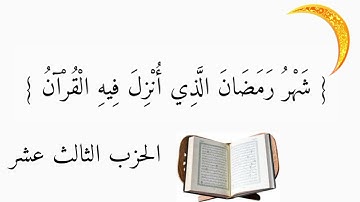 { شَهْرُ رَمَضَانَ الَّذِي أُنْزِلَ فِيهِ الْقُرْآنُ }
الحزب الثالث عشر